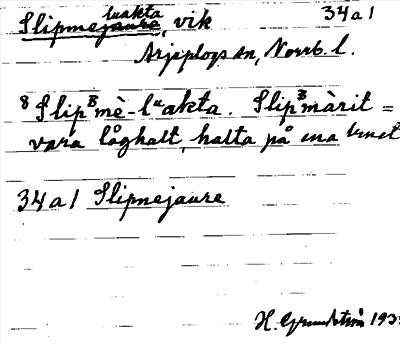 Slipmejaure luakta, vik 34 a 1
Arjeplogs sn, Norrb. l.
8 Slipᴮmè-lᵘakta. Slipᴮmàrit =
vara låghalt, halta på ena benet
34 a 1 Slipmejaure
H. Grundström